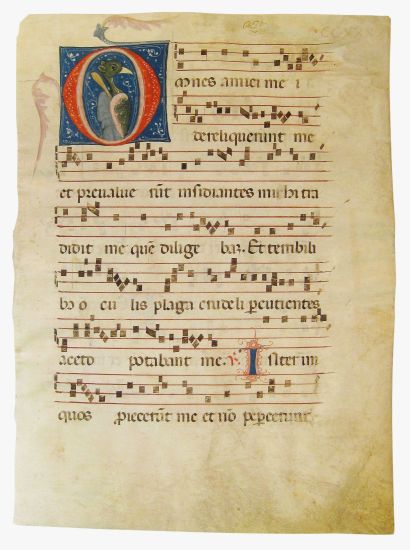 Omnes amici me i
dereliquerunt me
et prevalue rũt insidiantes michi tra
didit me quẽ dilige bar. Et terribili
bꝰ o cu lis plaga crudeli percutientes
aceto potabant me. Inter in
quos proiecerũt me et nõ pepercerunt